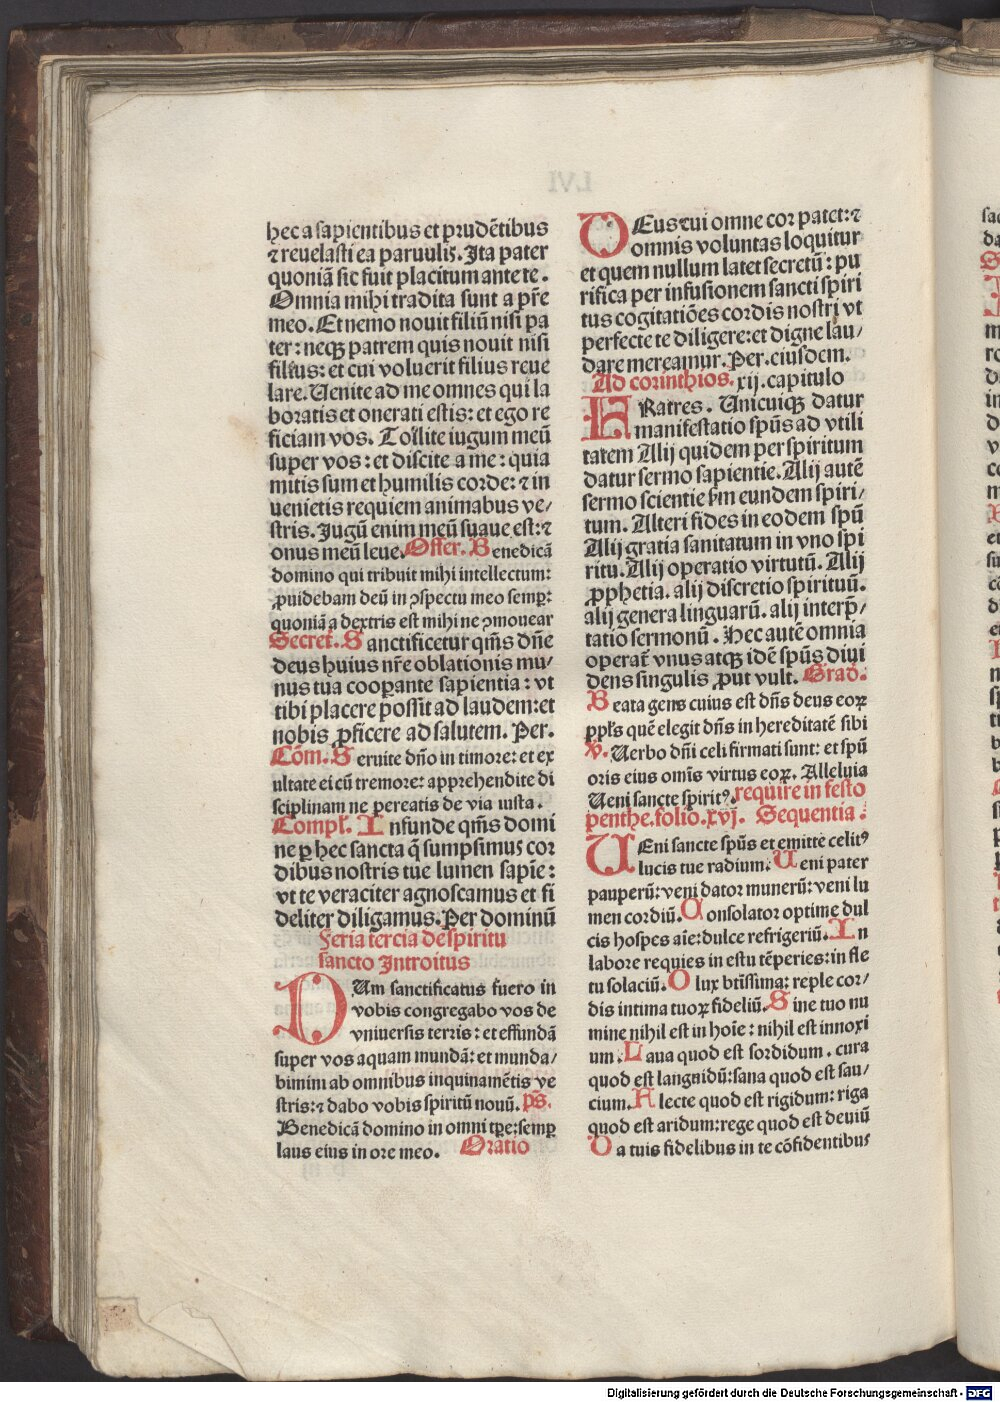 hec a sapientibus et prudētibus
⁊ reuelasti ea paruulis. Ita pater
quoniā sic fuit placitum ante te.
Omnia mihi tradita sunt a pr̄e
meo. Et nemo nouit filiū nisi pa
ter: neqꝫ patrem quis nouit nisi
filius: et cui voluerit filius reue
lare. Uenite ad me omnes qui la
boratis et onerati estis: et ego re
ficiam vos. Tollite iugum meū
super vos: et discite a me: quia
mitis sum et humilis corde: ⁊ in
uenietis requiem animabus ve/
stris. Jugū enim meū suaue est: ⁊
onus meū leue. Offer. Benedicā
domino qui tribuit mihi intellectum:
ꝓuidebam deū in ꝯspectu meo semꝑ:
quoniā a dextris est mihi ne ꝯmouear
Secret. Sanctificetur qm̄s dn̄e
deus huius nr̄e oblationis mu/
nus tua cooꝑante sapientia: vt
tibi placere possit ad laudem: et
nobis ꝓficere ad salutem. Per.
Cōm. Seruite dn̄o in timore: et ex
ultate ei cū tremore: apprehendite di
sciplinam ne ꝑeatis de via iusta.
Compl̄. Infunde qm̄s domi
ne ꝑ hec sancta q̄ sumpsimus cor
dibus nostris tue lumen sapīe:
vt te veraciter agnoscamus et fi
deliter diligamus. Per dominū
Feria tercia de spiritu
sancto Introitus
DUm sanctificatus fuero in
vobis congregabo vos de
vniuersis terris: et effundā
super vos aquam mundā: et munda/
bimini ab omnibus inquinamētis ve
stris: ⁊ dabo vobis spiritū nouū. ps̄.
Benedicā domino in omni tꝑe: semꝑ
laus eius in ore meo. Oratio
DEus cui omne cor patet: ⁊
omnis voluntas loquitur
et quem nullum latet secretū: pu
rifica per infusionem sancti spiri
tus cogitatiōes cordis nostri vt
perfecte te diligere: et digne lau/
dare mereamur. Per. eiusdem.
Ad corinthios. xij. capitulo
FRatres. Unicuiqꝫ datur
manifestatio spūs ad vtili
tatem Alij quidem per spiritum
datur sermo sapientie. Alij autē
sermo scientie ẜm eundem spiri/
tum. Alteri fides in eodem spū
Alij gratia sanitatum in vno spi
ritu. Alij operatio virtutū. Alij
ꝓphetia. alij discretio spirituū.
alij genera linguarū. alij interp̄/
tatio sermonū. Hec autē omnia
operat̄ vnus atqꝫ idē spūs diui
dens singulis ꝓut vult. Grad.
Beata gens cuius est dn̄s deus eoꝝ
ppl̄s quē elegit dn̄s in hereditatē sibi
v. Uerbo dn̄i celi firmati sunt: et spū
oris eius om̄s virtus eoꝝ. Alleluia
Ueni sancte spiritꝰ. require in festo
penthe. folio. xvj. Sequentia.
UEni sancte spūs et emitte celitꝰ
lucis tue radium. Ueni pater
pauperū: veni dator munerū: veni lu
men cordiū. Consolator optime dul
cis hospes aīe: dulce refrigeriū. In
labore requies in estu tēperies: in fle
tu solaciū. O lux bt̄issima: reple cor/
dis intima tuoꝝ fideliū. Sine tuo nu
mine nihil est in hoīe: nihil est innoxi
um. Laua quod est sordidum. cura
quod est languidū: sana quod est sau/
cium. Flecte quod est rigidum: riga
quod est aridum: rege quod est deuiū
Da tuis fidelibus in te cōfidentibus
Digitalisierung gefördert durch die Deutsche Forschungsgemeinschaft - DFG